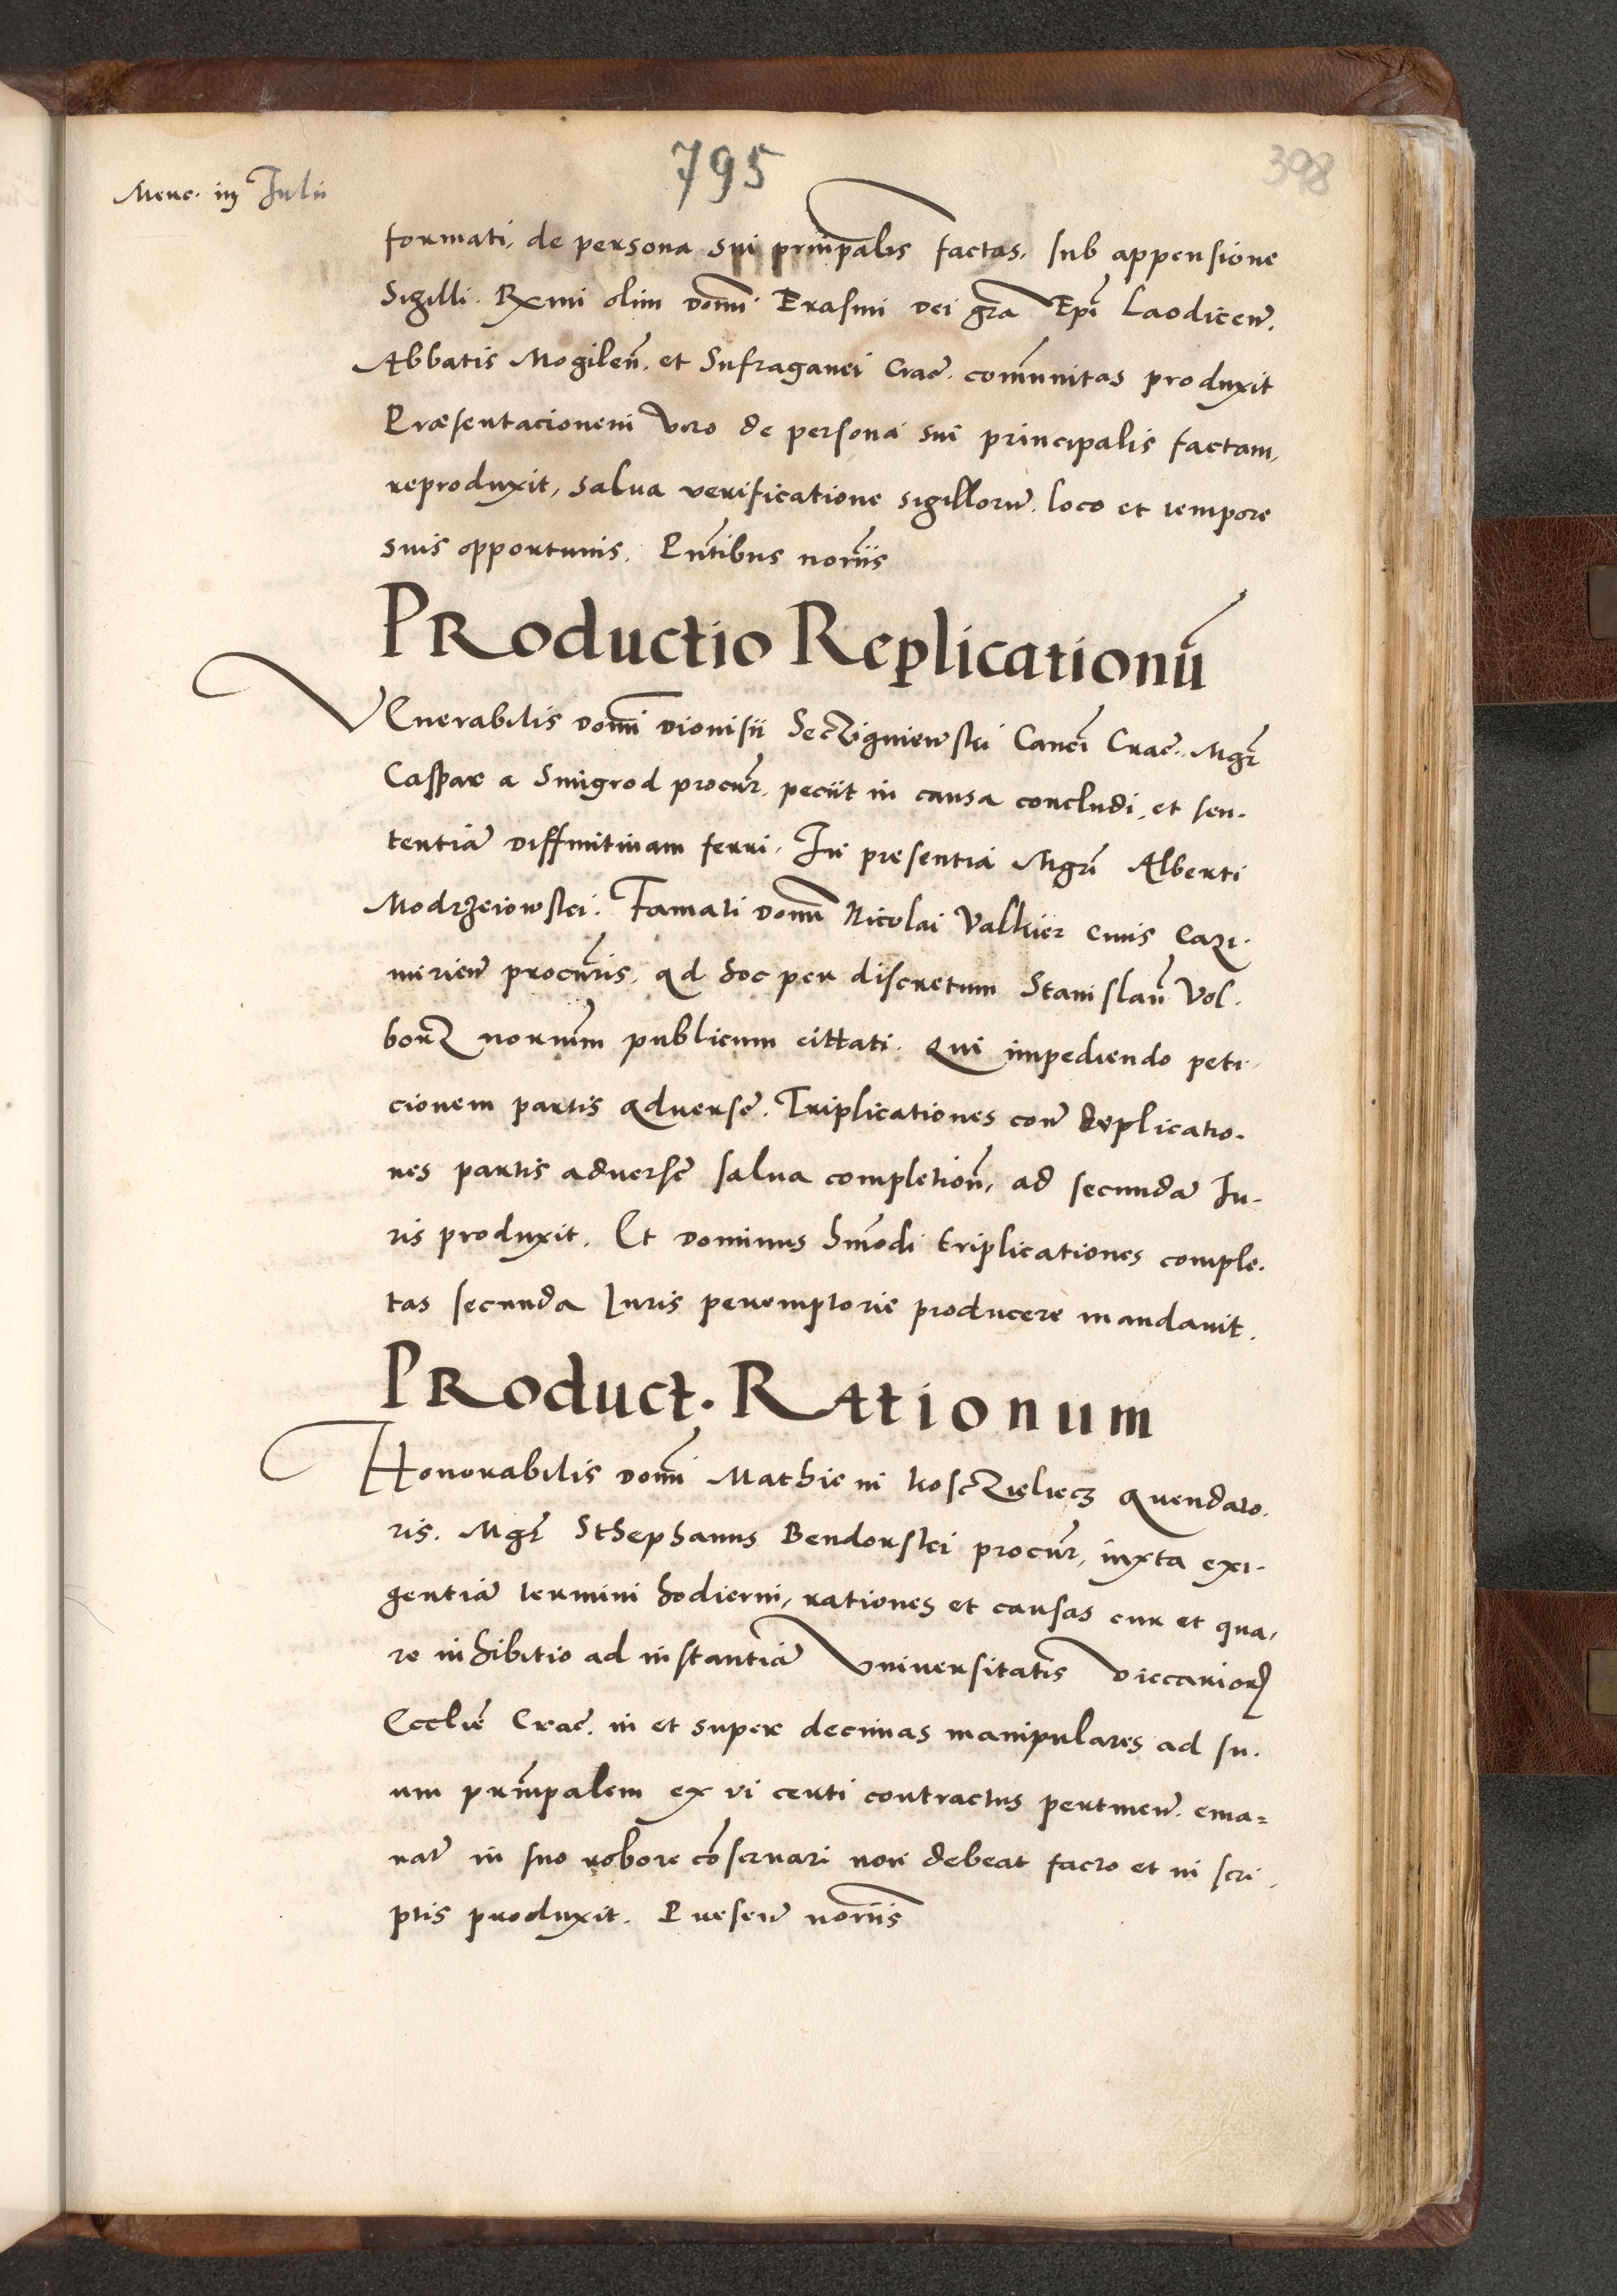 795
398
Merc. iij Julii
formati, de persona sui prin̄palis factas, sub appensione
Sigilli. Rx̄mi olim Domī Erasmi Dei gr̄a Ep̄i Laodiceñ.
Abbatis Mogileñ. et Sufraganei Crac̄. com̄unitas produxit
Præsentacionem vero de persona sui principalis factam,
reproduxit, salua verificatione sigillorum̄. loco et tempore
suis opportunis. Pn̄tibus nor̄iis
PRoductio Replicationū
Venerabilis Domī Dionisii Seczigniewski Canc̄i Crac̄. Mgr̄
Caspar a Smigrod procur̄. peciit in causa concludi, et sen-
tentiā diffinitiuam ferri. In presentia Mgr̄i Alberti
Modrzeiowskei. Famati Domī Nicolai Valhier ciuis Cazi-
mirien̄ procur̄is, ad hoc per discretum Stanislaū Vol-
borz norium̄ publicum cittati. Qui impediendo peti-
cionem partis aduerse. Triplicationes con̄ Replicatio-
nes partis aduerse salua completion̄, ad secundā Iu-
ris produxit. Et Dominus hm̄odi triplicationes comple-
tas secunda Iuris peremptorie producere mandauit.
PRoduct. RAtionum
Honorabilis Domī Mathie in kosczieliecz Arendato-
ris. Mgr̄ Sthephanus Bendorskei procur̄, iuxta exi-
gentiā termini hodierni, rationes et causas cur et qua-
re inhibitio ad instantiā Vniversitatis Viccarior̄
Ecclie̅ Crac̄. in et super decimas manipulares ad su-
um prin̄palem ex vi certi contractus pertinen̄. ema=
nat̄ in suo robore cōseruari non debeat facto et in scri-
ptis produxit. Presen̄ nor̄iis